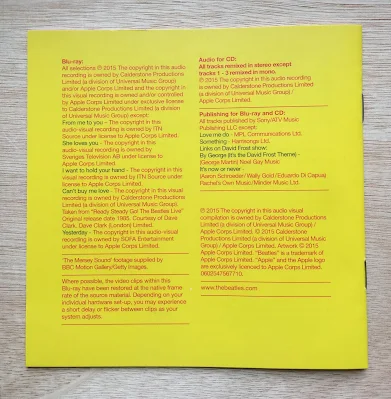 Blu-ray:
All selections ℗ 2015 The copyright in this audio
recording is owned by Calderstone Productions
Limited (a division of Universal Music Group)
and/or Apple Corps Limited and the copyright in
this visual recording is owned and/or controlled
by Apple Corps Limited under exclusive license
to Calderstone Productions Limited (a division
of Universal Music Group) except:
From me to you - The copyright in this
audio-visual recording is owned by ITN
Source under license to Apple Corps Limited.
She loves you - The copyright in this
audio-visual recording is owned by
Sveriges Television AB under license to
Apple Corps Limited.
I want to hold your hand - The copyright in this
visual recording is owned by ITN Source under
license to Apple Corps Limited.
Can't buy me love - The copyright in this visual
recording is owned by Calderstone Productions
Limited (a division of Universal Music Group).
Taken from "Ready Steady Go! The Beatles Live"
Original release date 1985. Courtesy of Dave
Clark, Dave Clark (London) Limited.
Yesterday - The copyright in this audio-visual
recording is owned by SOFA Entertainment
under license to Apple Corps Limited.
'The Mersey Sound' footage supplied by
BBC Motion Gallery/Getty Images.
Where possible, the video clips within this
Blu-ray have been restored at the native frame
rate of the source material. Depending on your
individual hardware set-up, you may experience
a short delay or flicker between clips as your
system adjusts.
Audio for CD:
All tracks remixed in stereo except
tracks 1 - 3 remixed in mono.
℗ 2015 The copyright in this audio recording
is owned by Calderstone Productions Limited
(a division of Universal Music Group) /
Apple Corps Limited.
Publishing for Blu-ray and CD:
All tracks published by Sony/ATV Music
Publishing LLC except:
Love me do - MPL Communications Ltd.
Something - Harrisongs Ltd.
Links on David Frost show:
By George (It's the David Frost Theme) -
(George Martin) Noel Gay Music
It's now or never -
(Aaron Schroeder/ Wally Gold/Eduardo Di Capua)
Rachel's Own Music/Minder Music Ltd.
℗ 2015 The copyright in this audio visual
compilation is owned by Calderstone Productions
Limited (a division of Universal Music Group) /
Apple Corps Limited. © 2015 Calderstone
Productions Limited (a division of Universal Music
Group) / Apple Corps Limited. Artwork © 2015
Apple Corps Limited. "Beatles" is a trademark of
Apple Corps Limited. "Apple" and the Apple logo
are exclusively licensed to Apple Corps Limited.
0602547567710.
www.thebeatles.com